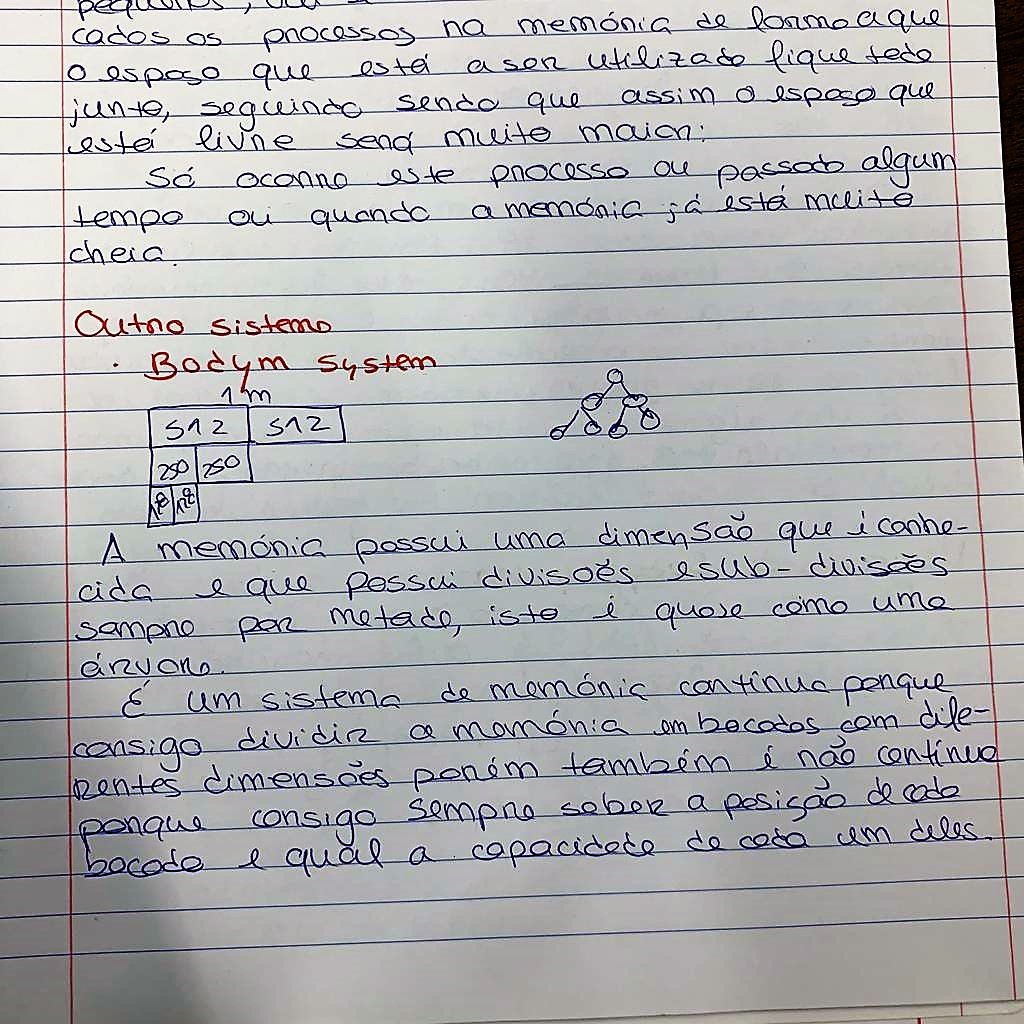 cados os processos na memória de forma a que
o espaço que está a ser utilizado fique todo
junto, seguindo sendo que assim o espaço que
está livre será muito maior.
Só ocorre este processo ou passado algum
tempo ou quando a memória já está muito
cheia.
Outro sistema
· Bodym system
1 m
512 512
250 250
A memória possui uma dimensão que é conhe-
cida e que possui divisões e sub-divisões
sempre por metade, isto é quase como uma
árvore.
É um sistema de memória contínua porque
consigo dividir a memória em bocados com dife-
rentes dimensões porém também é não contínua
porque consigo sempre saber a posição de cada
bocado e qual a capacidade de cada um deles.